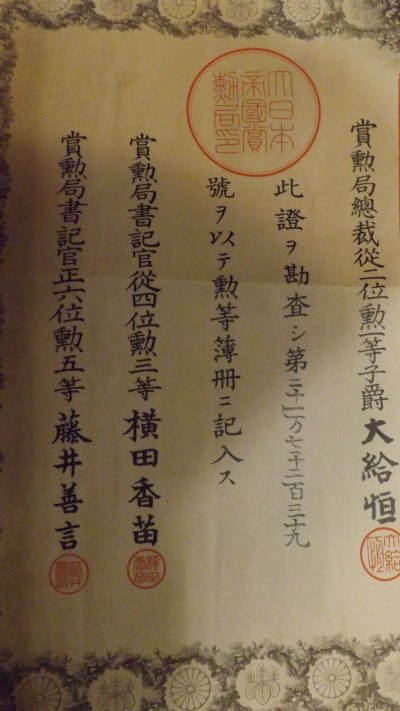 賞勲局總裁從二位勲一等子爵大給恒
大給恒
此證ヲ勘査シ第三十一万七千二百三十九
號ヲ以テ勲等簿冊ニ記入ス
大日本
帝國賞
勲局印
賞勲局書記官從四位勲三等横田香苗
横田香苗
賞勲局書記官正六位勲五等藤井善言
藤井善言